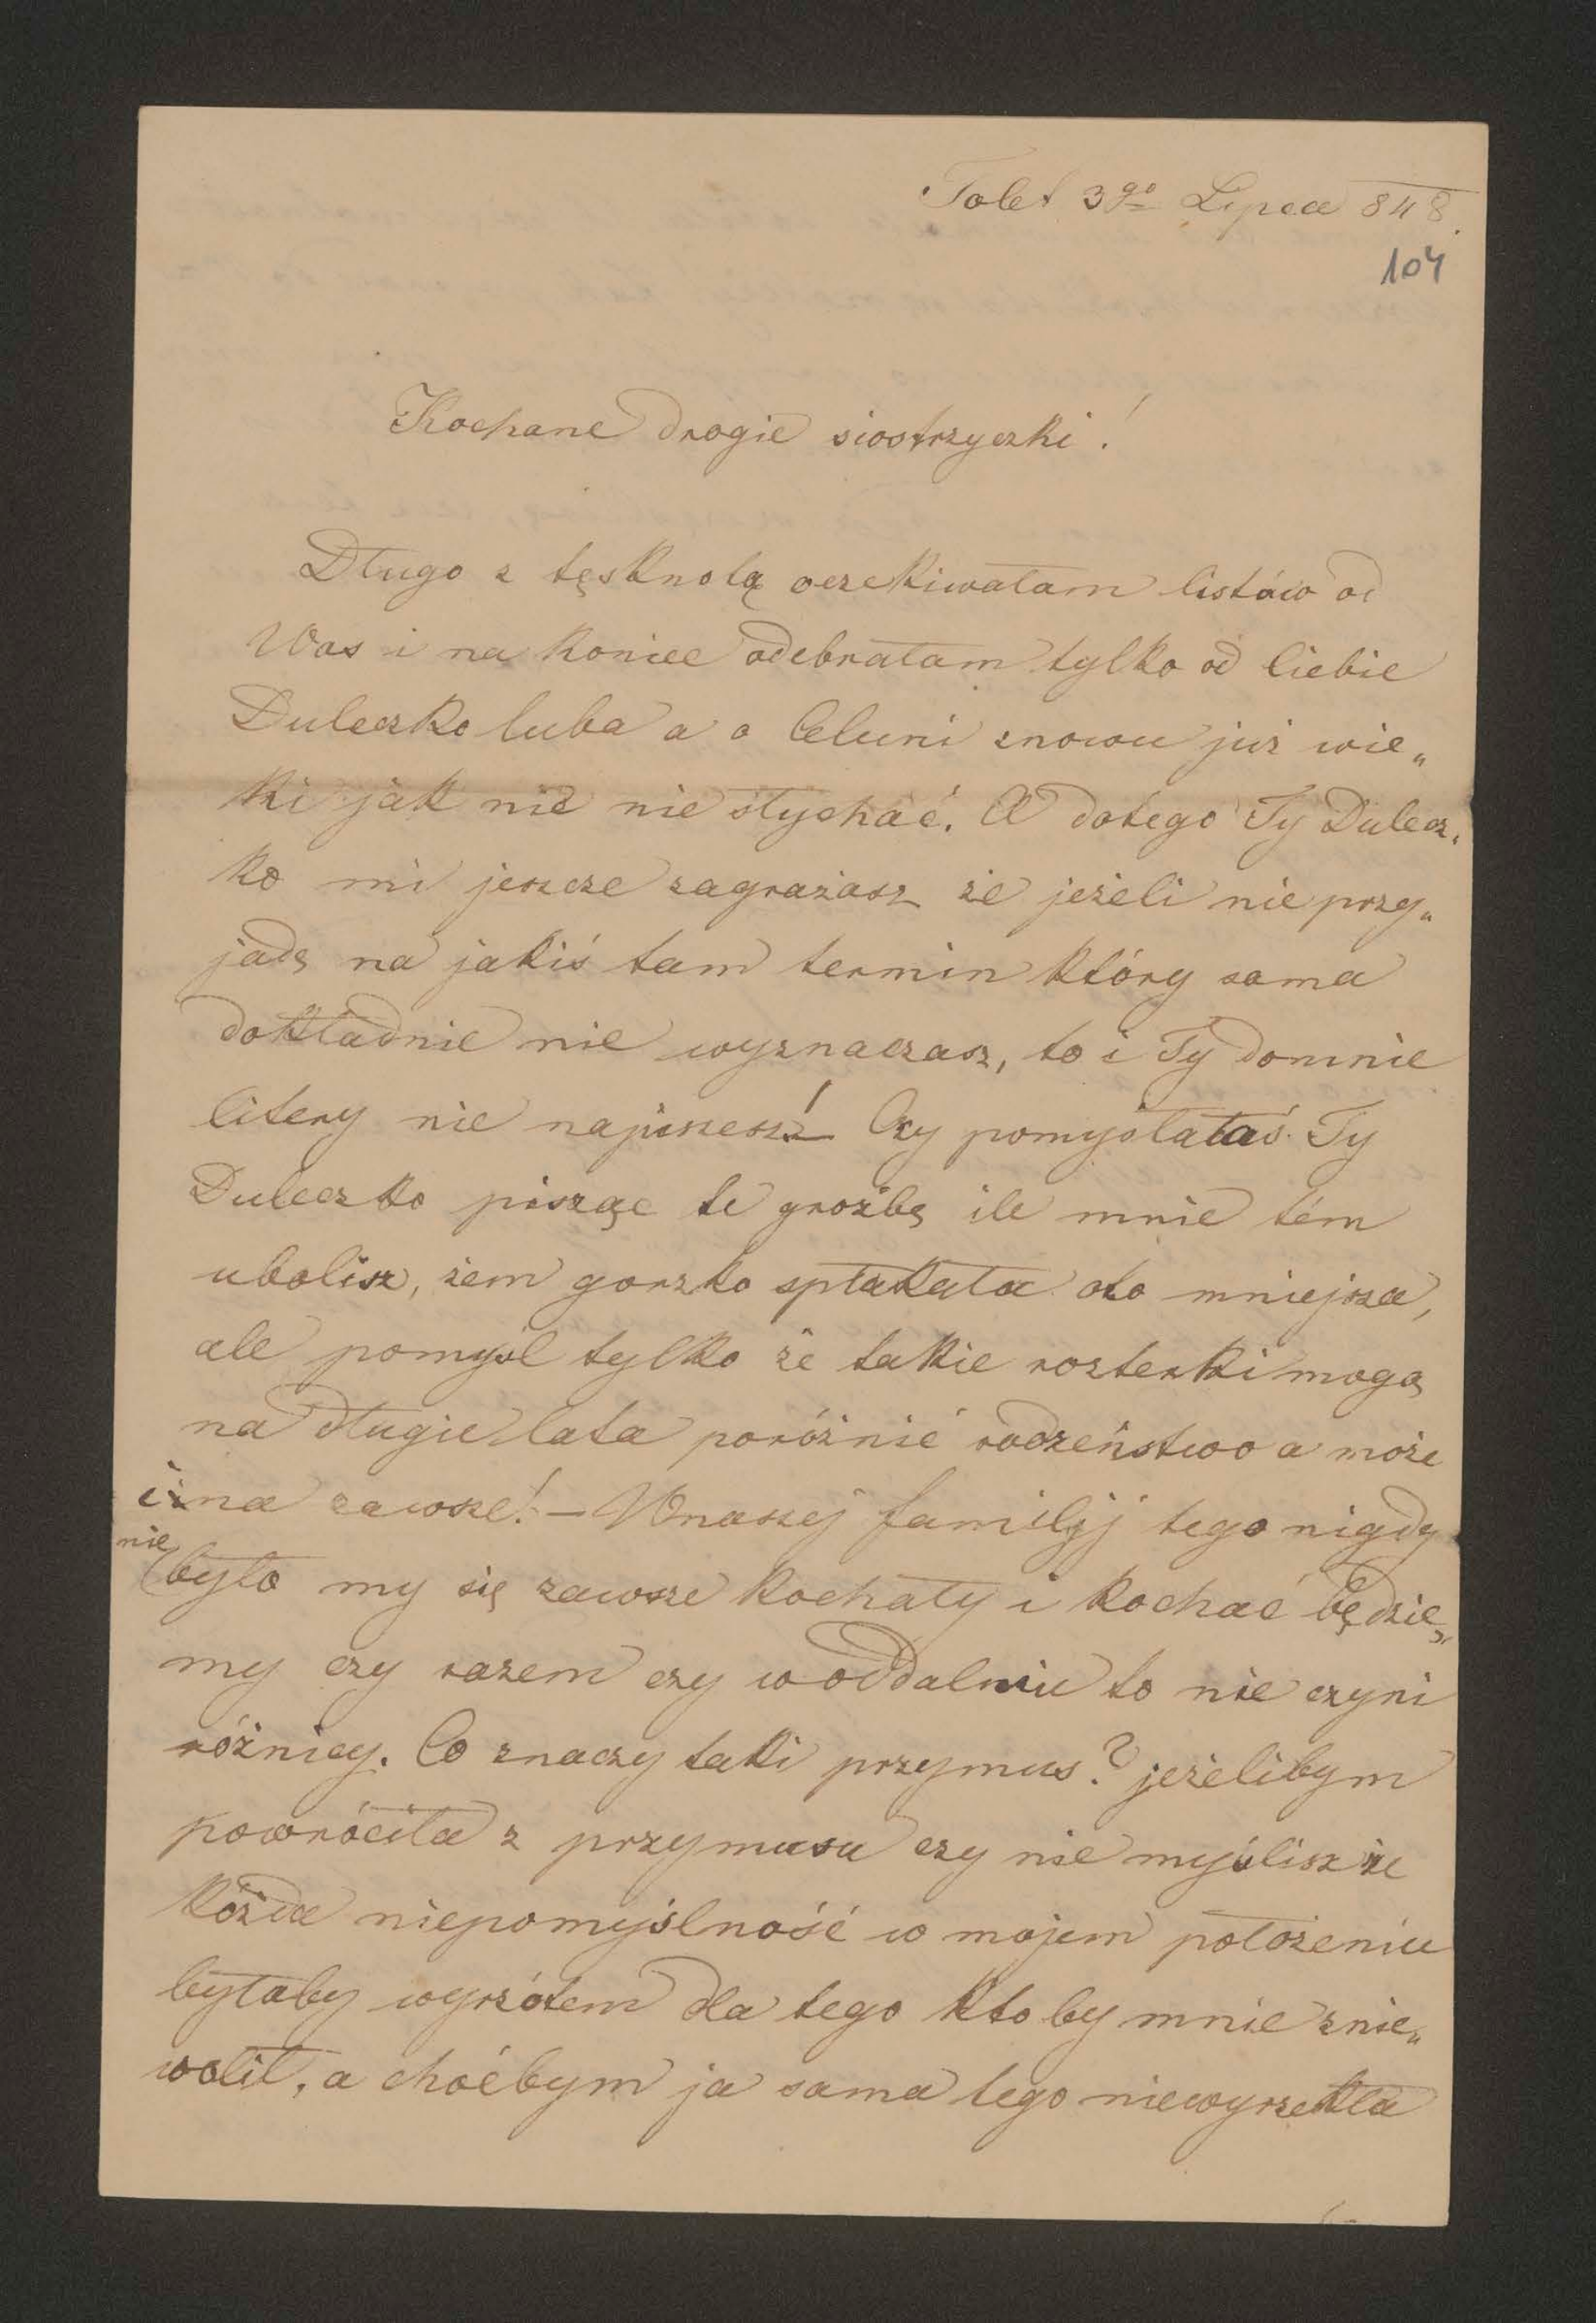 Tolet 3go Lipca 848.
104
Kochane drogie siostrzyczki!
Długo z tęsknotą oczekiwałam listów od
Was i na koniec odebrałam tylko od Ciebie
Duleczko luba a o Celuni znowu już wie„
ki jak nic nie słychać. A dotego Ty Dulecz„
ko mi jeszcze zagrażasz że jeżeli nie przy„
jadę na jakiś tam termin który sama
dokładnie nie wyznaczasz, to i Ty domnie
litery nie napiszesz! Czy pomyślałaś Ty
Duleczko pisząc te groźbę ile mnie tém
ubolisz, żem gorzko spłakała oto mniejsza,
ale pomyśl tylko że takie rozterki mogą
na długie lata poróżnić rodzeństwo a może
i na zawsze! – Wnaszej familij tego nigdy
nie
było my się zawsze kochały i kochać będzie„
my czy razem czy w oddalniu to nie czyni
różnicy. Co znaczy taki przymus? jeżelibym
powróciła z przymusu czy nie myślisz że
kóżda niepomyślność w mojem położeniu
byłaby wyrzótem dla tego ktoby mnie znie„
wolił, a choćbym ja sama tego niewyrzekła